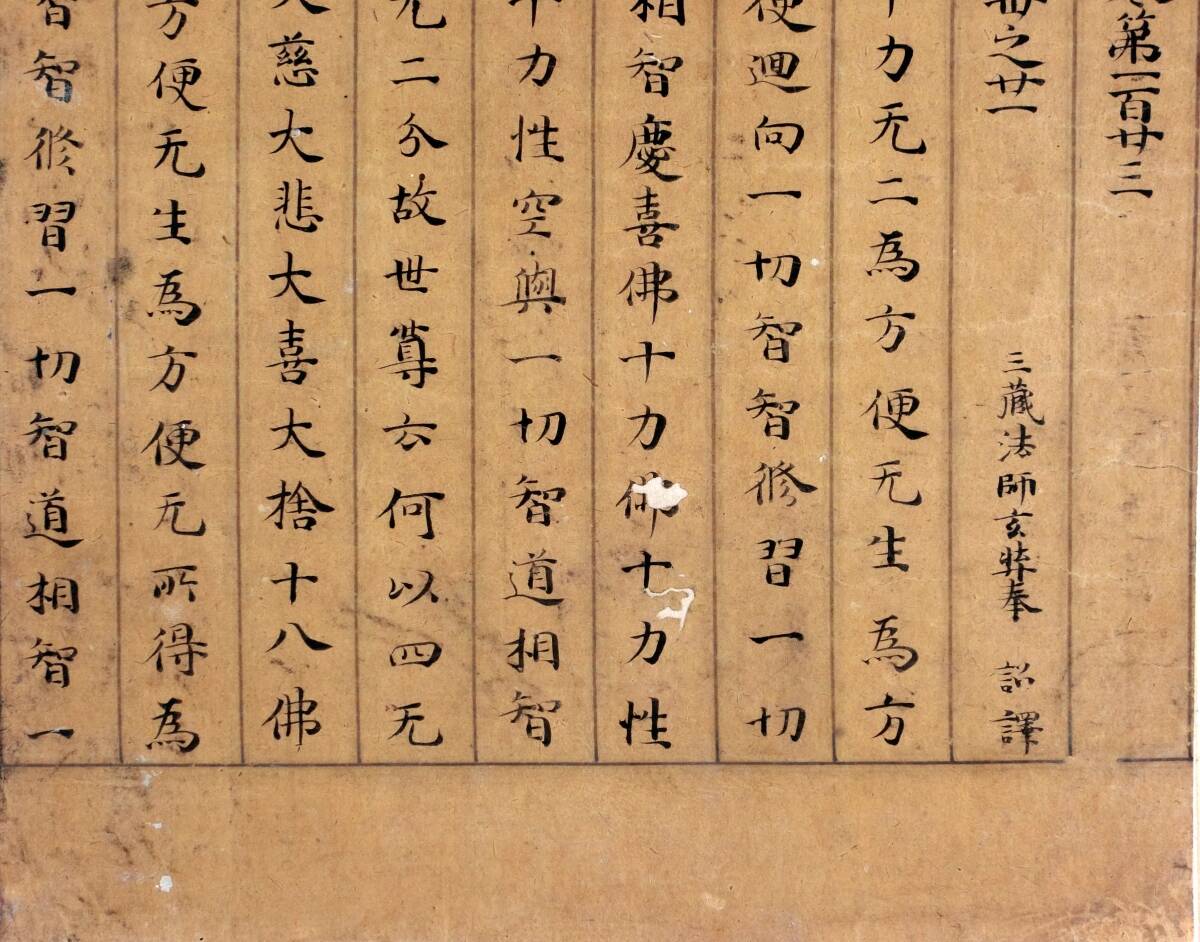 卷第一百廿三
卅之廿一 三藏法師玄奘奉 詔譯
十力无二為方便无生為方
便迴向一切智智修習一切
相智慶喜佛十力佛十力性
十力性空與一切智道相智
无二分故世尊云何以四无
大慈大悲大喜大捨十八佛
方便无生為方便无所得為
智智修習一切智道相智一